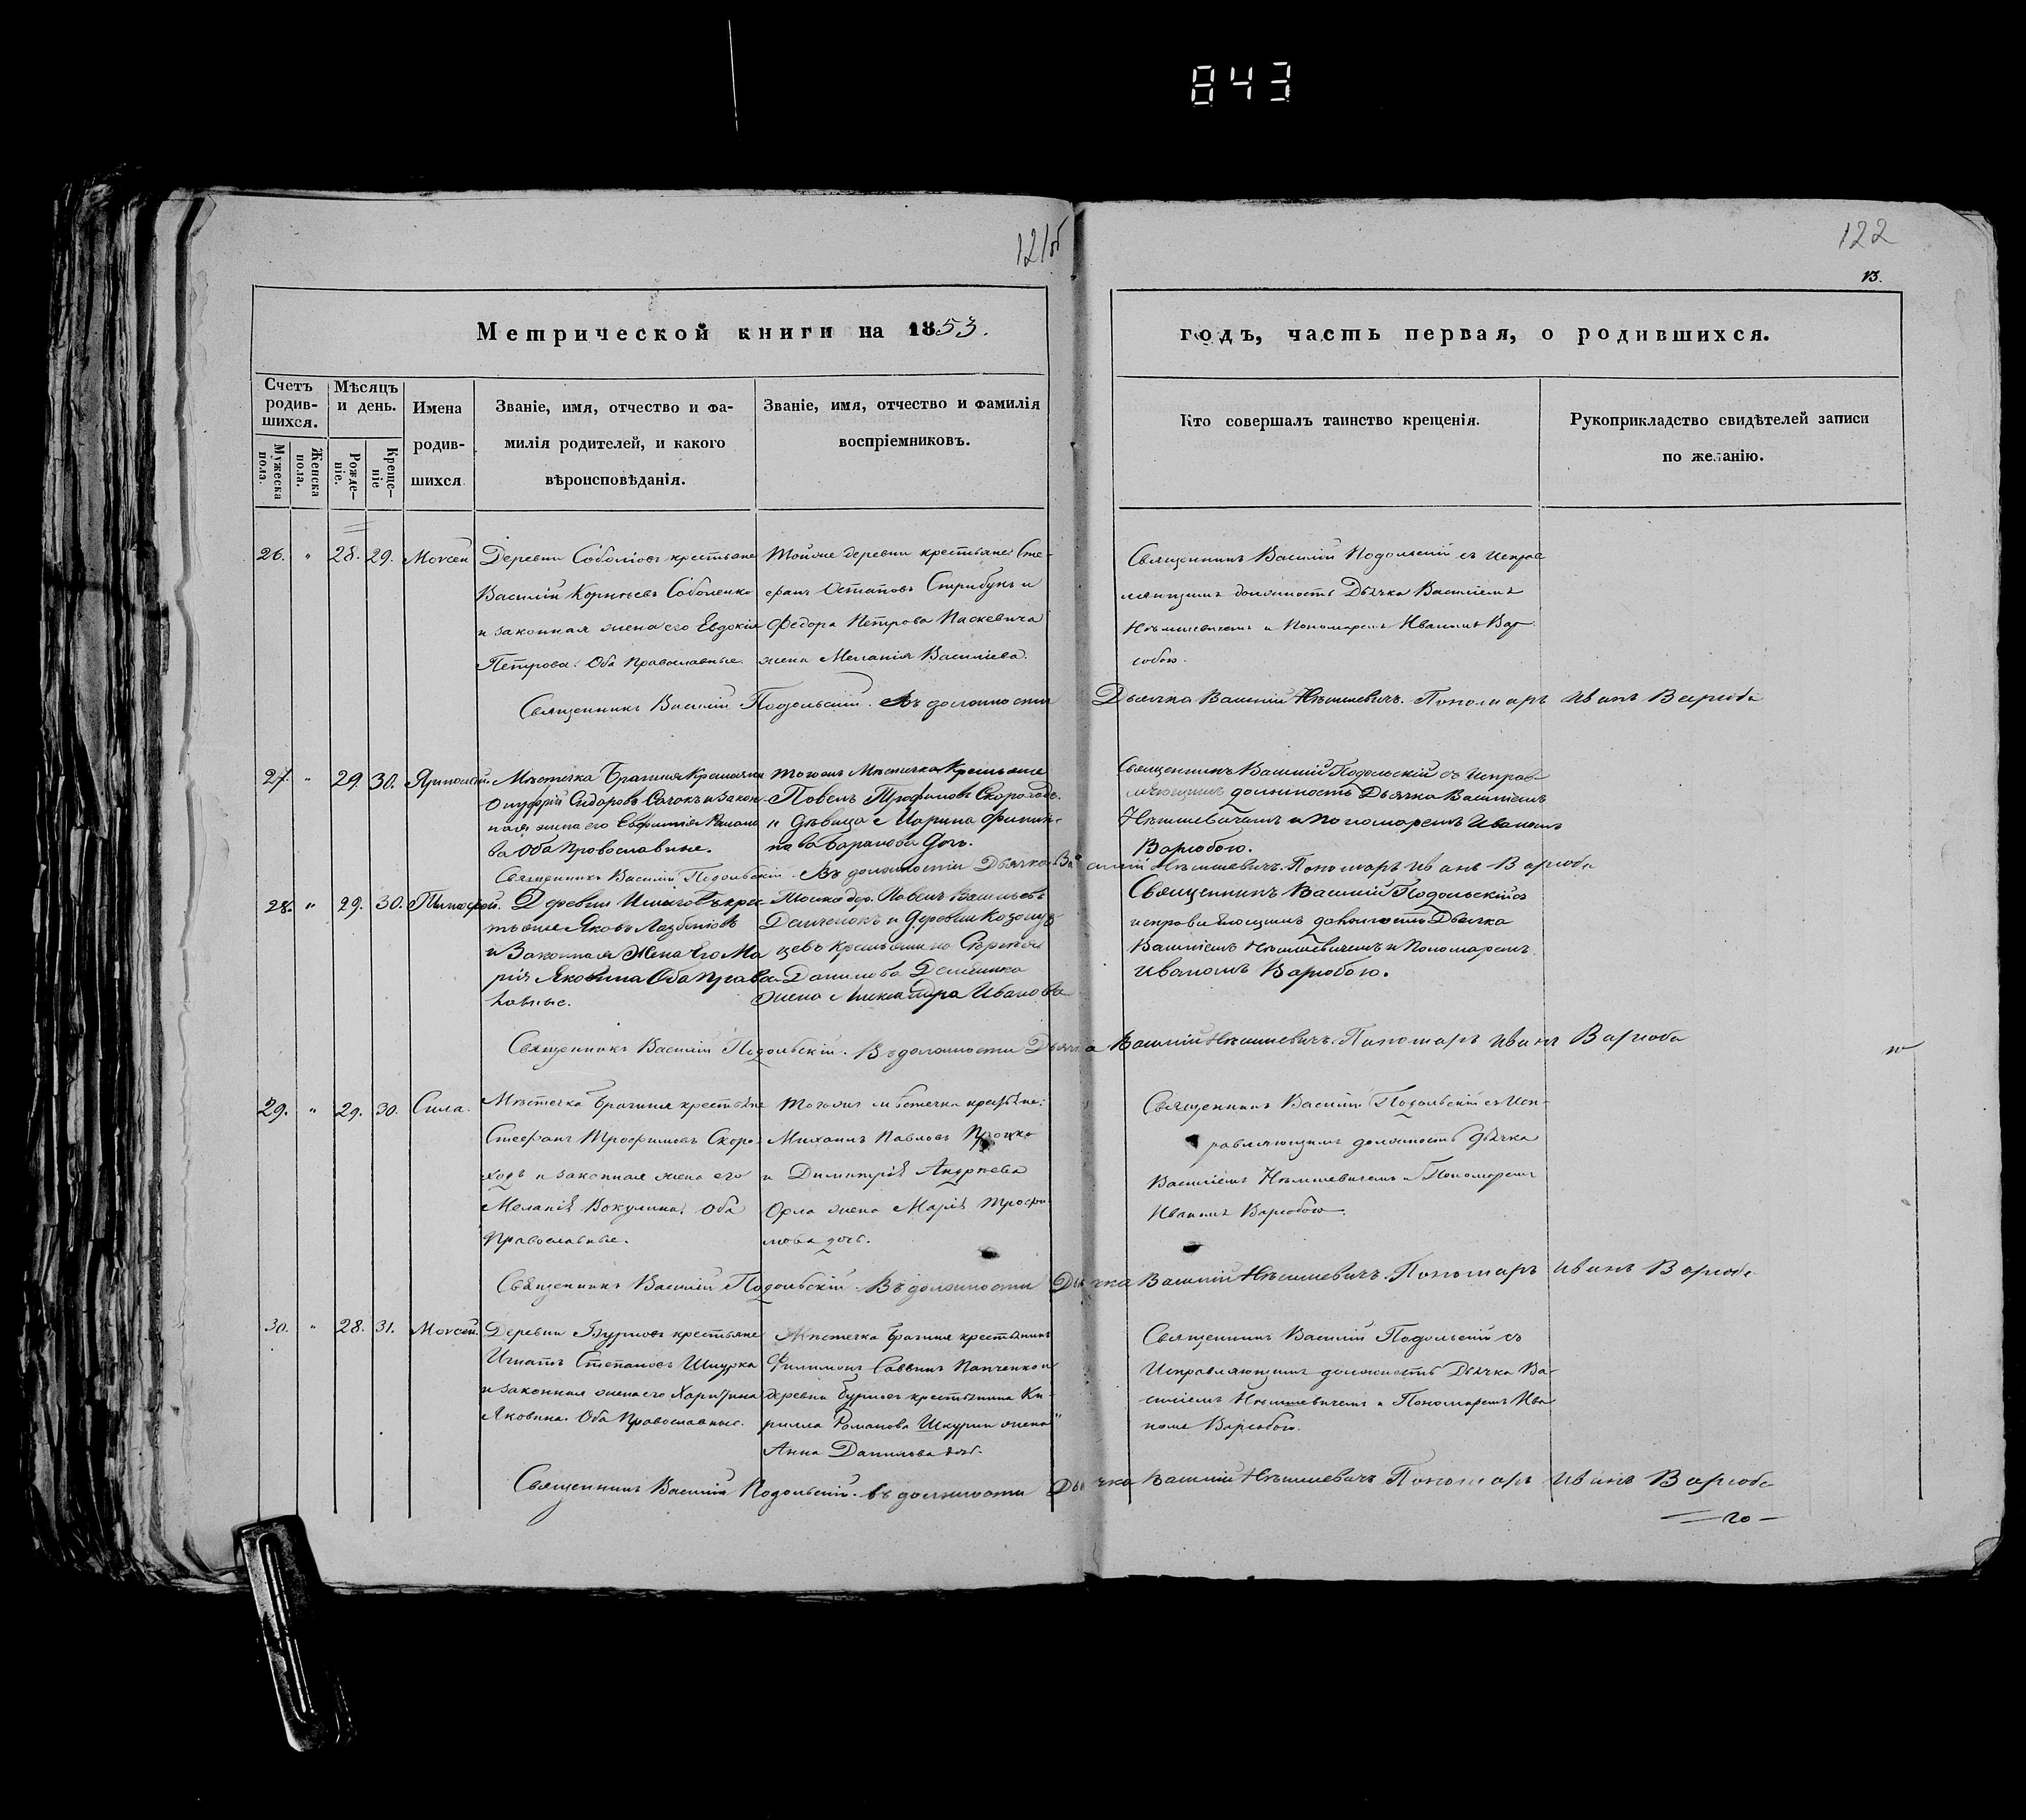 843
121об
122
13.
Метрической книги на 1853.
годъ, часть первая, о родившихся.
Счетъ родив-шихся.
Мужеска пола.
Женска пола.
Мѣсяцъ и день.
Рожде-ніе.
Креще-ніе
Имена
родив-
шихся
Званіе, имя, отчество и фа-
милія родителей, и какого
вѣроисповѣданія.
Званіе, имя, отчество и фамилія
воспріемниковъ.
Кто совершалъ таинство крещенія.
Рукоприкладство свидѣтелей записи
по желанію.
26. " 28. 29. Моѵсей
Деревни крестьяне
Василій Корнѣевъ Соболенко
и законная жена его Евдокія
Петрова. Оба Православные.
Тойже деревни крестьяне Сте-
фанъ Остаповъ Стрибукъ и
Федора Петрова Паскевича
жена Меланія Василіева.
Священникъ Василій Подольскій съ исправ
ляющимъ должность Дьячка Василіемъ
и Пономаремъ Иваномъ Вар
юбою.
Священникъ Василій Подольскій. Въ должности Дьячка Василій Пономарь Иванъ Варюба
27. " 29. 30.
Мѣстечка Брагиня Крестьяне
Онуфрій Сидоровъ и закон-
ная жена его Евфимія Романо
ва Оба Православные.
тогожъ Мѣстечка Крестьяне
Павелъ Трофимовъ Скороходъ
и дѣвица Марина
Баранова дочь.
Священникъ Василій Подольскій съ исправ-
ляющимъ должность Дьячка Василіемъ
и Пономаремъ Иваномъ
Варюбою.
Священникъ Василій Подольскій. Въ должности Дьячка Василій Пономарь Иванъ Варюба
28. " 29. 30. Тимофей.
Деревни крес
тьяне Яковъ
и Законная Жена Его Ма
рія Яковина Оба Правос
лавные.
Тойже дер. Павелъ Васильевъ
и деревни
крестьянина Сергѣя
Данилова
жена Александра Иванова
Священникъ Василій Подольскій съ
исправляющимъ должность Дьячка
Василіемъ и Пономаремъ
Иваномъ Варюбою.
Священникъ Василій Подольскій. Въ должности Дьячка Василій Пономарь Иванъ Варюба
29. " 29. 30. Сила.
Мѣстечка Брагиня крестьяне
Стефанъ Трофимовъ Скоро
ходъ и законная жена его
Меланія Вокулина. Оба
Православные.
Тогожъ мѣстечка крестьяне:
Михаилъ Павловъ
и Димитрія Андреева
Орла жена Марія Трофи
мова дочь.
Священникъ Василій Подольскій съ Исп-
равляющимъ должность Дьячка
Василіемъ и Пономаремъ
Иваномъ Варюбою.
Священникъ Василій Подольскій. Въ должности Дьячка Василій Пономарь Иванъ Варюба
30. " 28. 31. Моѵсей.
Деревни Бурковъ крестьяне
Игнатъ Степановъ Шкурка
и законная жена его Харитина
Яковина. Оба Православные.
Мѣстечка Брагиня крестьянинъ
Филимонъ Саввинъ Панченко и
деревни Бурковъ крестьянина Ки-
рилла Романова Шкурки жена
Анна Данилова дочь.
Священникъ Василій Подольскій съ
Исправляющимъ должность Дьячка Ва-
силіемъ и Пономаремъ Ива
номъ Варюбою.
Священникъ Василій Подольскій. въ должности Дьячка Василій Пономарь Иванъ Варюба